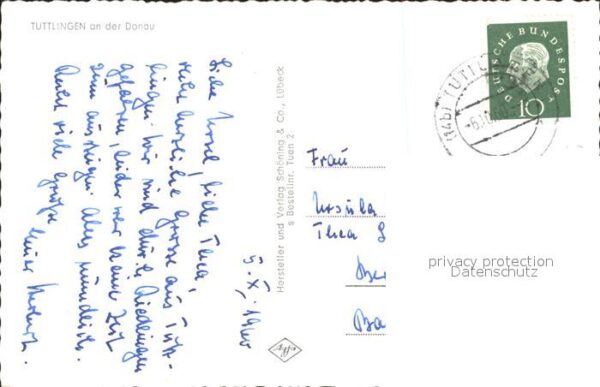 TUTTLINGEN an der Donau
5. X. 1960
Liebe Ursel, liebe Thea,
recht herzliche Grüsse aus Tutt-
lingen. Wir sind durch Riedlingen
gefahren, leider war keine Zeit
zum aussteigen. Also mündlich.
Recht viele Grüße
Hersteller und Verlag Schöning & Co., Lübeck
Bestellnr. Tuen 2
Frau
Ursula
Thea
DEUTSCHE BUNDESPOST
10
(14b) TUTTLINGEN
privacy protection
Datenschutz